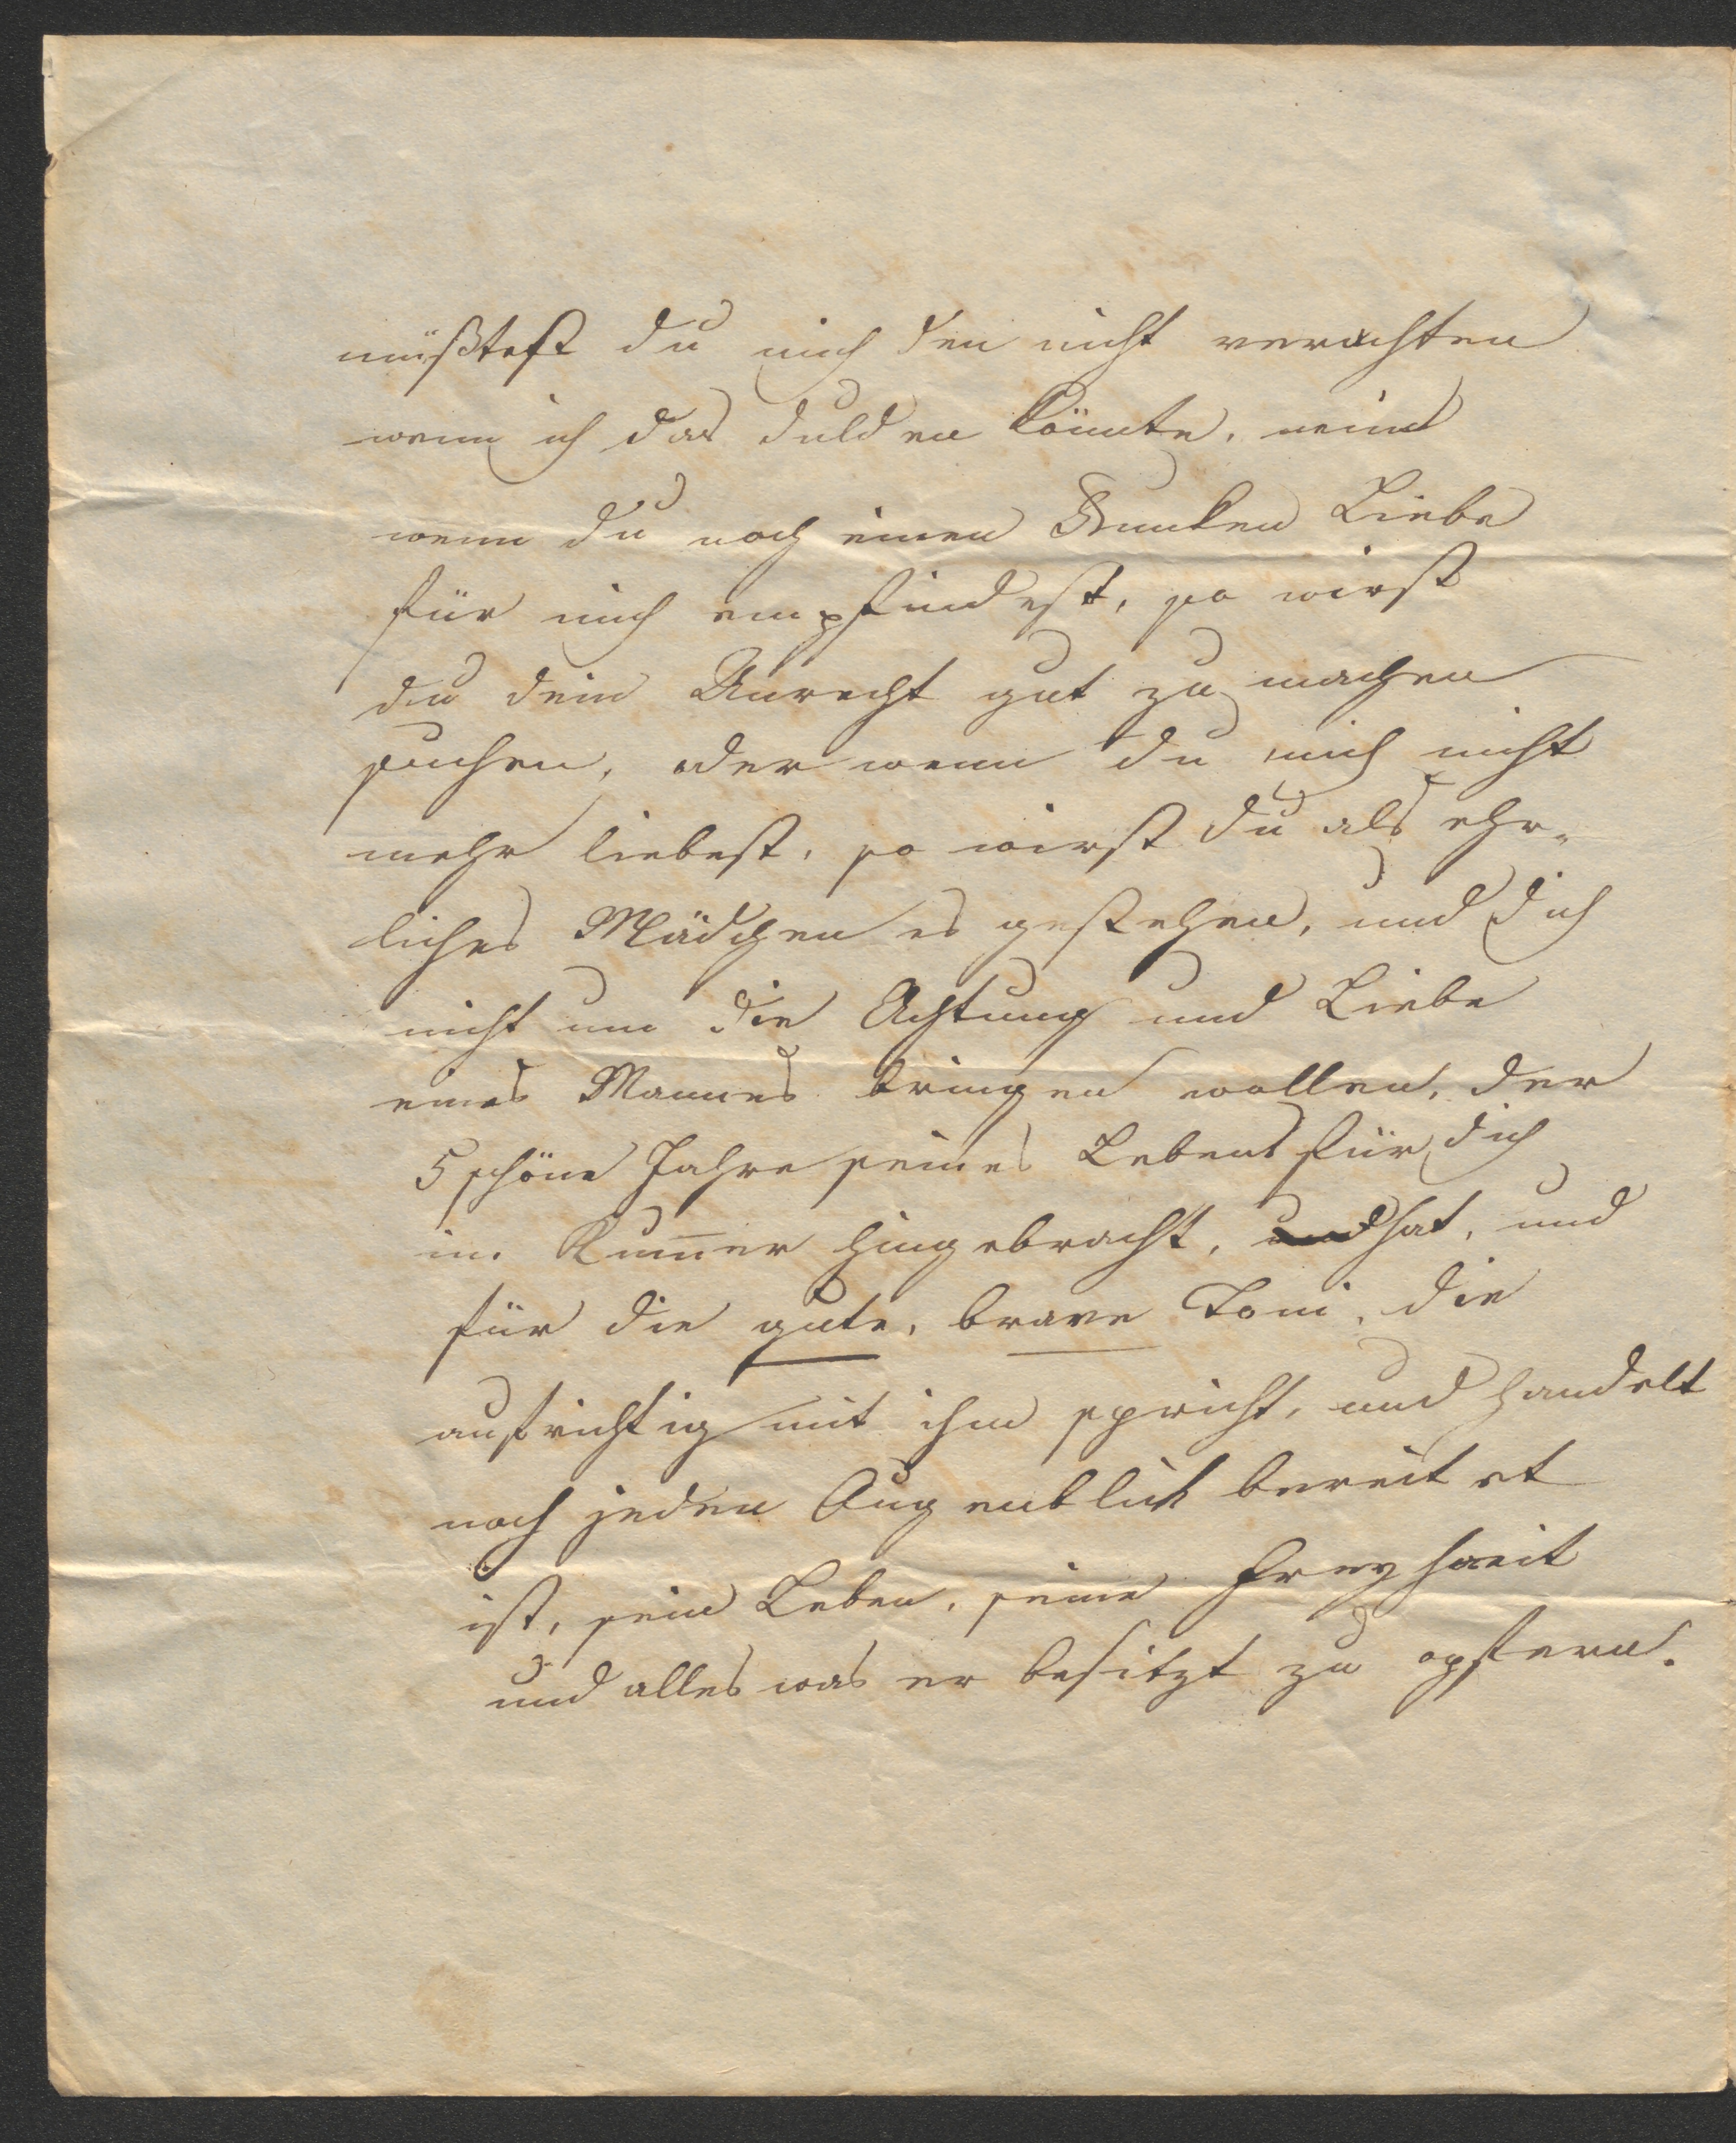 müßtest du mich den nicht verachten
wenn ich das dulden könnte, nein
wenn du noch einen Funken Liebe
für mich empfindest, so wirst
du dein Unrecht gut zu machen
suchen, oder wenn du mich nicht
mehr liebest, so wirst du als ehr-
liches Mädchen es gestehen, und dich
nicht um die Achtung und Liebe
eines Mannes bringen wollen, der
5 schöne Jahre seines Lebens für dich
in Kum̅er hingebracht, und hat, und
für die gute, brave Toni, die
aufrichtig mit ihm spricht, und handelt
noch jeden Augenblick bereitet
ist, sein Leben, seine Freyheit
und alles was er besitzt zu opfern.